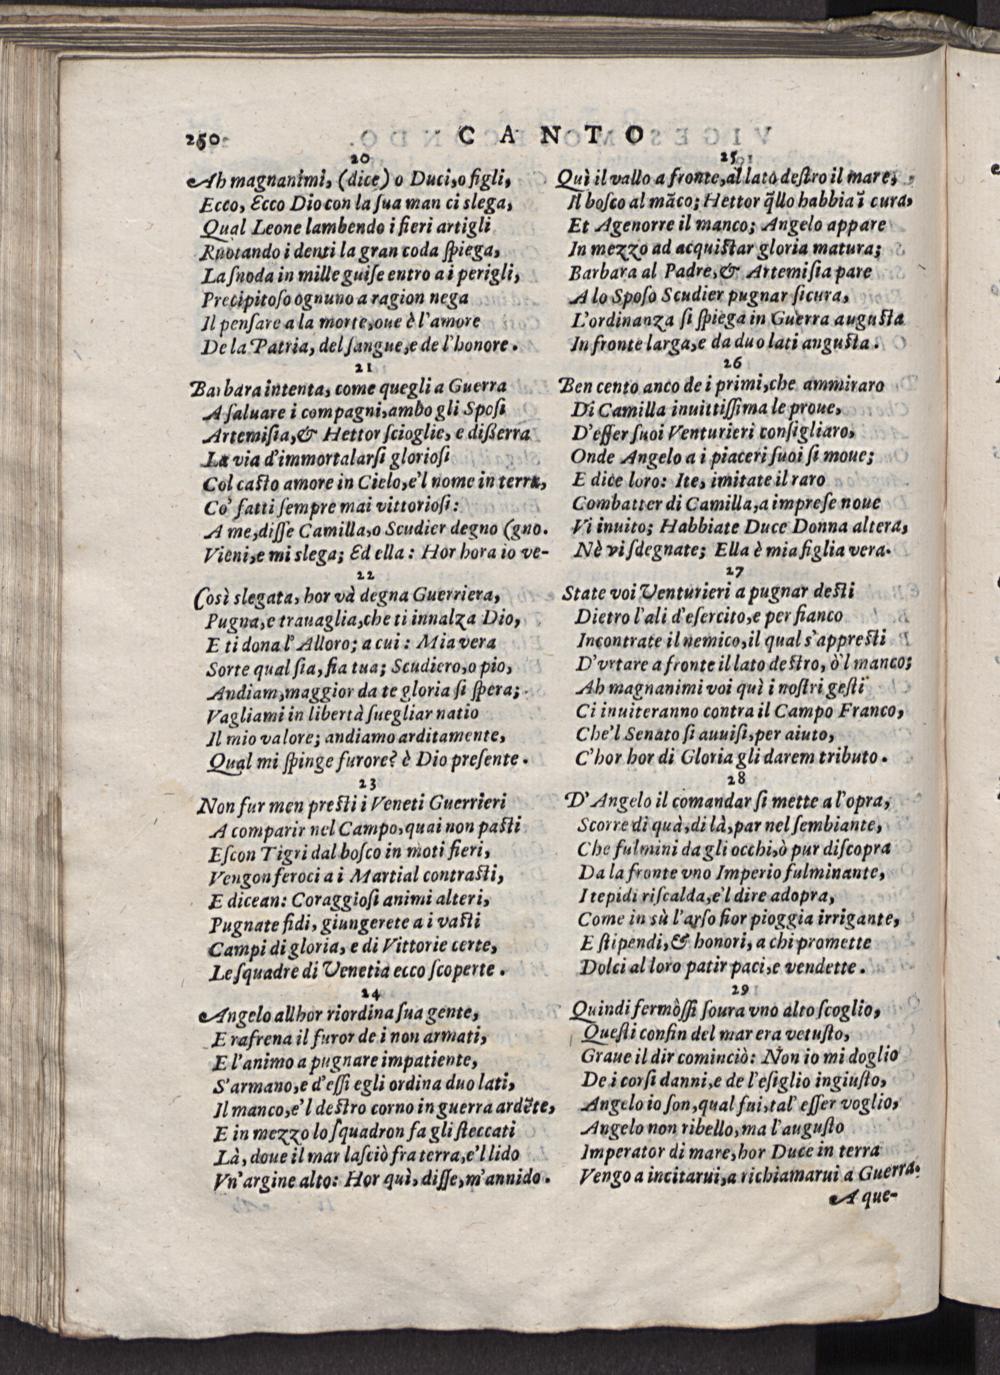 260
CANTO
20
Ah magnanimi, (dice) o Duci, o figli,
Ecco, Ecco Dio con la ſua man ci slega,
Qual Leone lambendo i fieri artigli
Ruotando i denti la gran coda ſpiega,
La ſnoda in mille guiſe entro a i perigli,
Precipitoſo ognuno a ragion nega
Il penſare a la morte, oue è l'amore
De la Patria, del ſangue, e de l'honore.
21
Barbara intenta, come quegli a Guerra
A ſaluare i compagni, ambo gli Spoſi
Artemiſia, & Hettor ſcioglie, e diſſerra
La via d'immortalarſi glorioſi
Col caſto amore in Cielo, e'l nome in terra,
Co' fatti ſempre mai vittorioſi:
A me, diſſe Camilla, o Scudier degno (gno.
Vieni, e mi slega; Ed ella: Hor hora io ve-
22
Così slegata, hor và degna Guerriera,
Pugna, e trauaglia, che ti innalza Dio,
E ti dona l'Alloro; a cui: Mia vera
Sorte qual ſia, fia tua; Scudiero, o pio,
Andiam, maggior da te gloria ſi ſpera;
Vagliami in libertà ſuegliar natio
Il mio valore; andiamo arditamente,
Qual mi ſpinge furore? è Dio preſente.
23
Non fur men preſti i Veneti Guerrieri
A comparir nel Campo, quai non paſti
Eſcon Tigri dal boſco in moti fieri,
Vengon feroci a i Martial contraſti,
E dicean: Coraggioſi animi alteri,
Pugnate fidi, giungerete a i vaſti
Campi di gloria, e di Vittorie certe,
Le ſquadre di Venetia ecco ſcoperte.
24
Angelo allhor riordina ſua gente,
E rafrena il furor de i non armati,
E l'animo a pugnare impatiente,
S'armano, e d'eſſi egli ordina duo lati,
Il manco, e'l deſtro corno in guerra ardẽte,
E in mezzo lo ſquadron fa gli ſteccati
Là, doue il mar laſciò fra terra, e'l lido
Vn'argine alto: Hor quì, diſſe, m'annido.
25
Quì il vallo a fronte, al lato deſtro il mare,
Il boſco al mãco; Hettor q̃llo habbia ĩ cura,
Et Agenorre il manco; Angelo appare
In mezzo ad acquiſtar gloria matura;
Barbara al Padre, & Artemiſia pare
A lo Spoſo Scudier pugnar ſicura,
L'ordinanza ſi ſpiega in Guerra auguſta
In fronte larga, e da duo lati anguſta.
26
Ben cento anco de i primi, che ammiraro
Di Camilla inuittiſſima le proue,
D'eſſer ſuoi Venturieri conſigliaro,
Onde Angelo a i piaceri ſuoi ſi moue;
E dice loro: Ite, imitate il raro
Combatter di Camilla, a impreſe noue
Vi inuito; Habbiate Duce Donna altera,
Nè vi ſdegnate; Ella è mia figlia vera.
27
State voi Venturieri a pugnar deſti
Dietro l'ali d'eſercito, e per fianco
Incontrate il nemico, il qual s'appreſti
D'vrtare a fronte il lato deſtro, ò'l manco;
Ah magnanimi voi quì i noſtri geſti
Ci inuiteranno contra il Campo Franco,
Che'l Senato ſi auuiſi, per aiuto,
C'hor hor di Gloria gli darem tributo.
28
D'Angelo il comandar ſi mette a l'opra,
Scorre di quà, di là, par nel ſembiante,
Che fulmini da gli occhi, ò pur diſcopra
Da la fronte vno Imperio fulminante,
I tepidi riſcalda, e'l dire adopra,
Come in sù l'arſo fior pioggia irrigante,
E ſtipendi, & honori, a chi promette
Dolci al loro patir paci, e vendette.
29
Quindi fermòſſi ſoura vno alto ſcoglio,
Queſti confin del mar era vetuſto,
Graue il dir cominciò: Non io mi doglio
De i corſi danni, e de l'eſiglio ingiuſto,
Angelo io ſon, qual fui, tal' eſſer voglio,
Angelo non ribello, ma l'auguſto
Imperator di mare, hor Duce in terra
Vengo a incitarui, a richiamarui a Guerra.
A que-